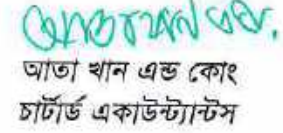 আতা খান এন্ড কোং
চার্টার্ড একাউন্ট্যান্টস